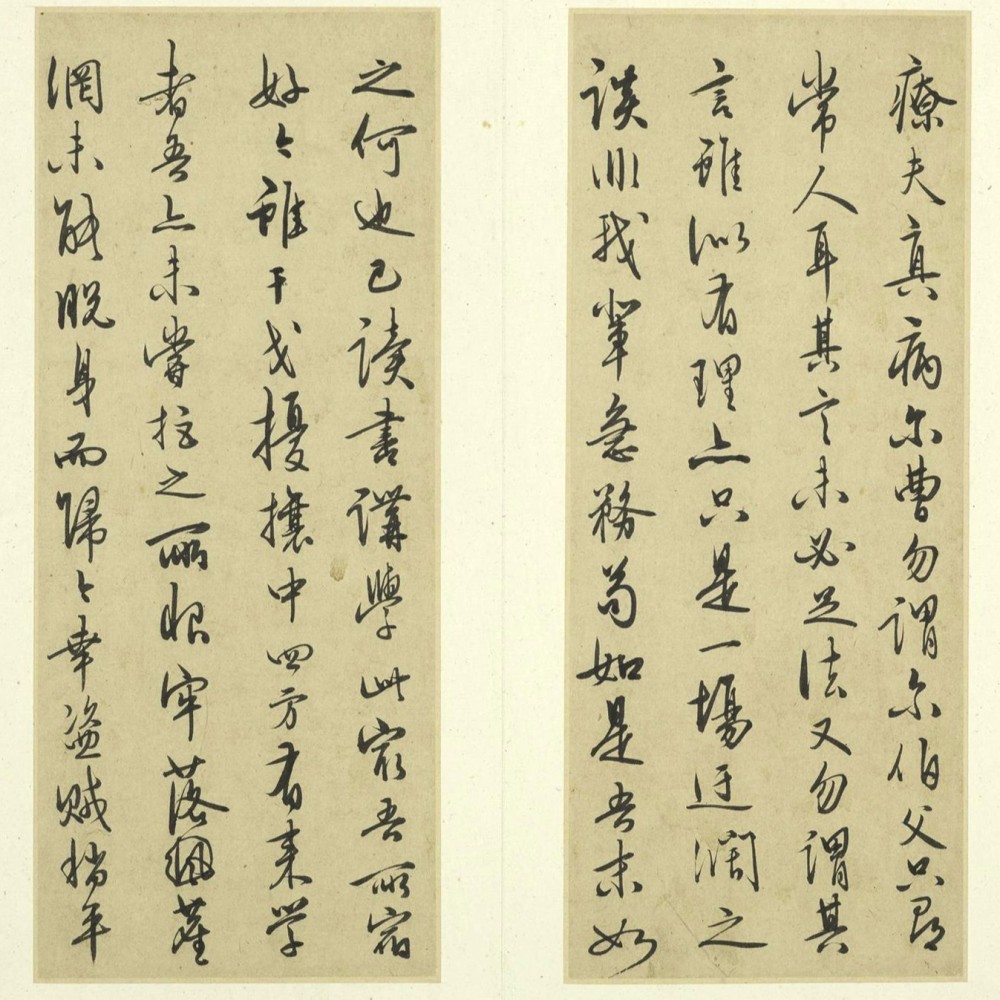 療夫真病尔曹勿謂尔伯父只尋
常人耳其言未必足法又勿謂其
言雖似有理亦只是一場迂闊之
談非我輩急務苟如是吾末如
之何也已讀書講學此最吾所宿
好今雖干戈擾攘中四方有来学
者吾亦未嘗拒之所恨牢落塵
網未能脱身而歸今幸盜賊稍平